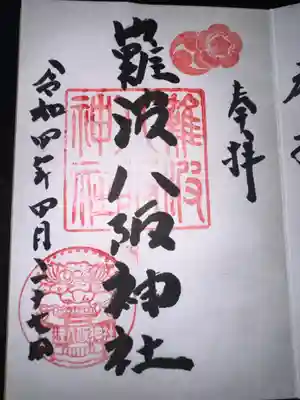 奉拝
難波八阪神社
令和四年四月二十七日
難波
神社